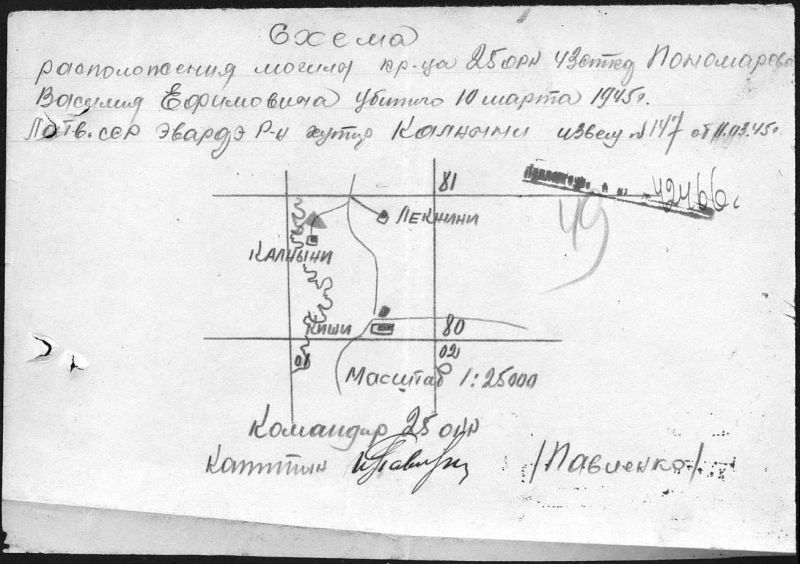 Схема
расположения могилы кр-ца 25 орн 43 откд Пономарева
Василия Ефимовича убитого 10 марта 1945г.
Латв.сср Эвардэ Р-н хутор Калныни извещ №147 от 11.03.45г
81
42466с
49
Лекнини
Калныни
Киши
80
01
02
Масштаб 1:25000
Командир 25 орн
Капитан /Павленко/